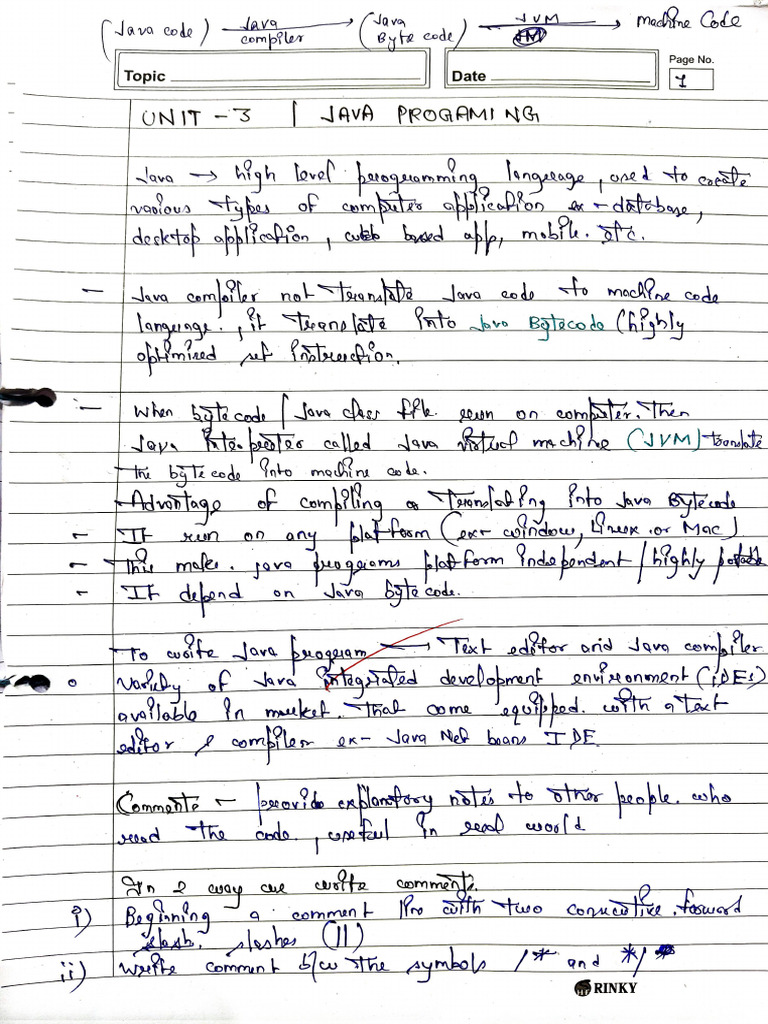 (Java code) Java compiler → (Java Byte code) JVM → machine Code
Topic
Date
Page No.
1
UNIT - 3 | JAVA PROGAMING
Java → high level programming language, used to create
various types of computer application ex - database,
desktop application, web based app, mobile. etc.
- Java compiler not translate Java code to machine code
language., it translate into Java Bytecode (highly
optimized set instruction.
:- When bytecode / Java class file. run on computer. Then
Java Interpreter called Java virtual machine (JVM) translate
the bytecode into machine code.
Advantage of compiling or Translating into Java Bytecode
- It run on any platform (ex- window, Linux. or Mac)
- This make. java programs platform independent / highly portable
- It depend on Java bytecode.
To write Java program → Text editor and Java compiler
o variety of Java integrated development environment (IDEs)
available in market. That come equipped. with a text
editor & compiler ex- Java Net beans IDE.
Comments - provide explanatory notes to other people. who
read the code., useful in real world
In 2 way we write comment.
i) Beginning a comment line with two consecutive. forward
slash. slashes (//)
ii) Write comment b/w the symbols /* and */
RINKY